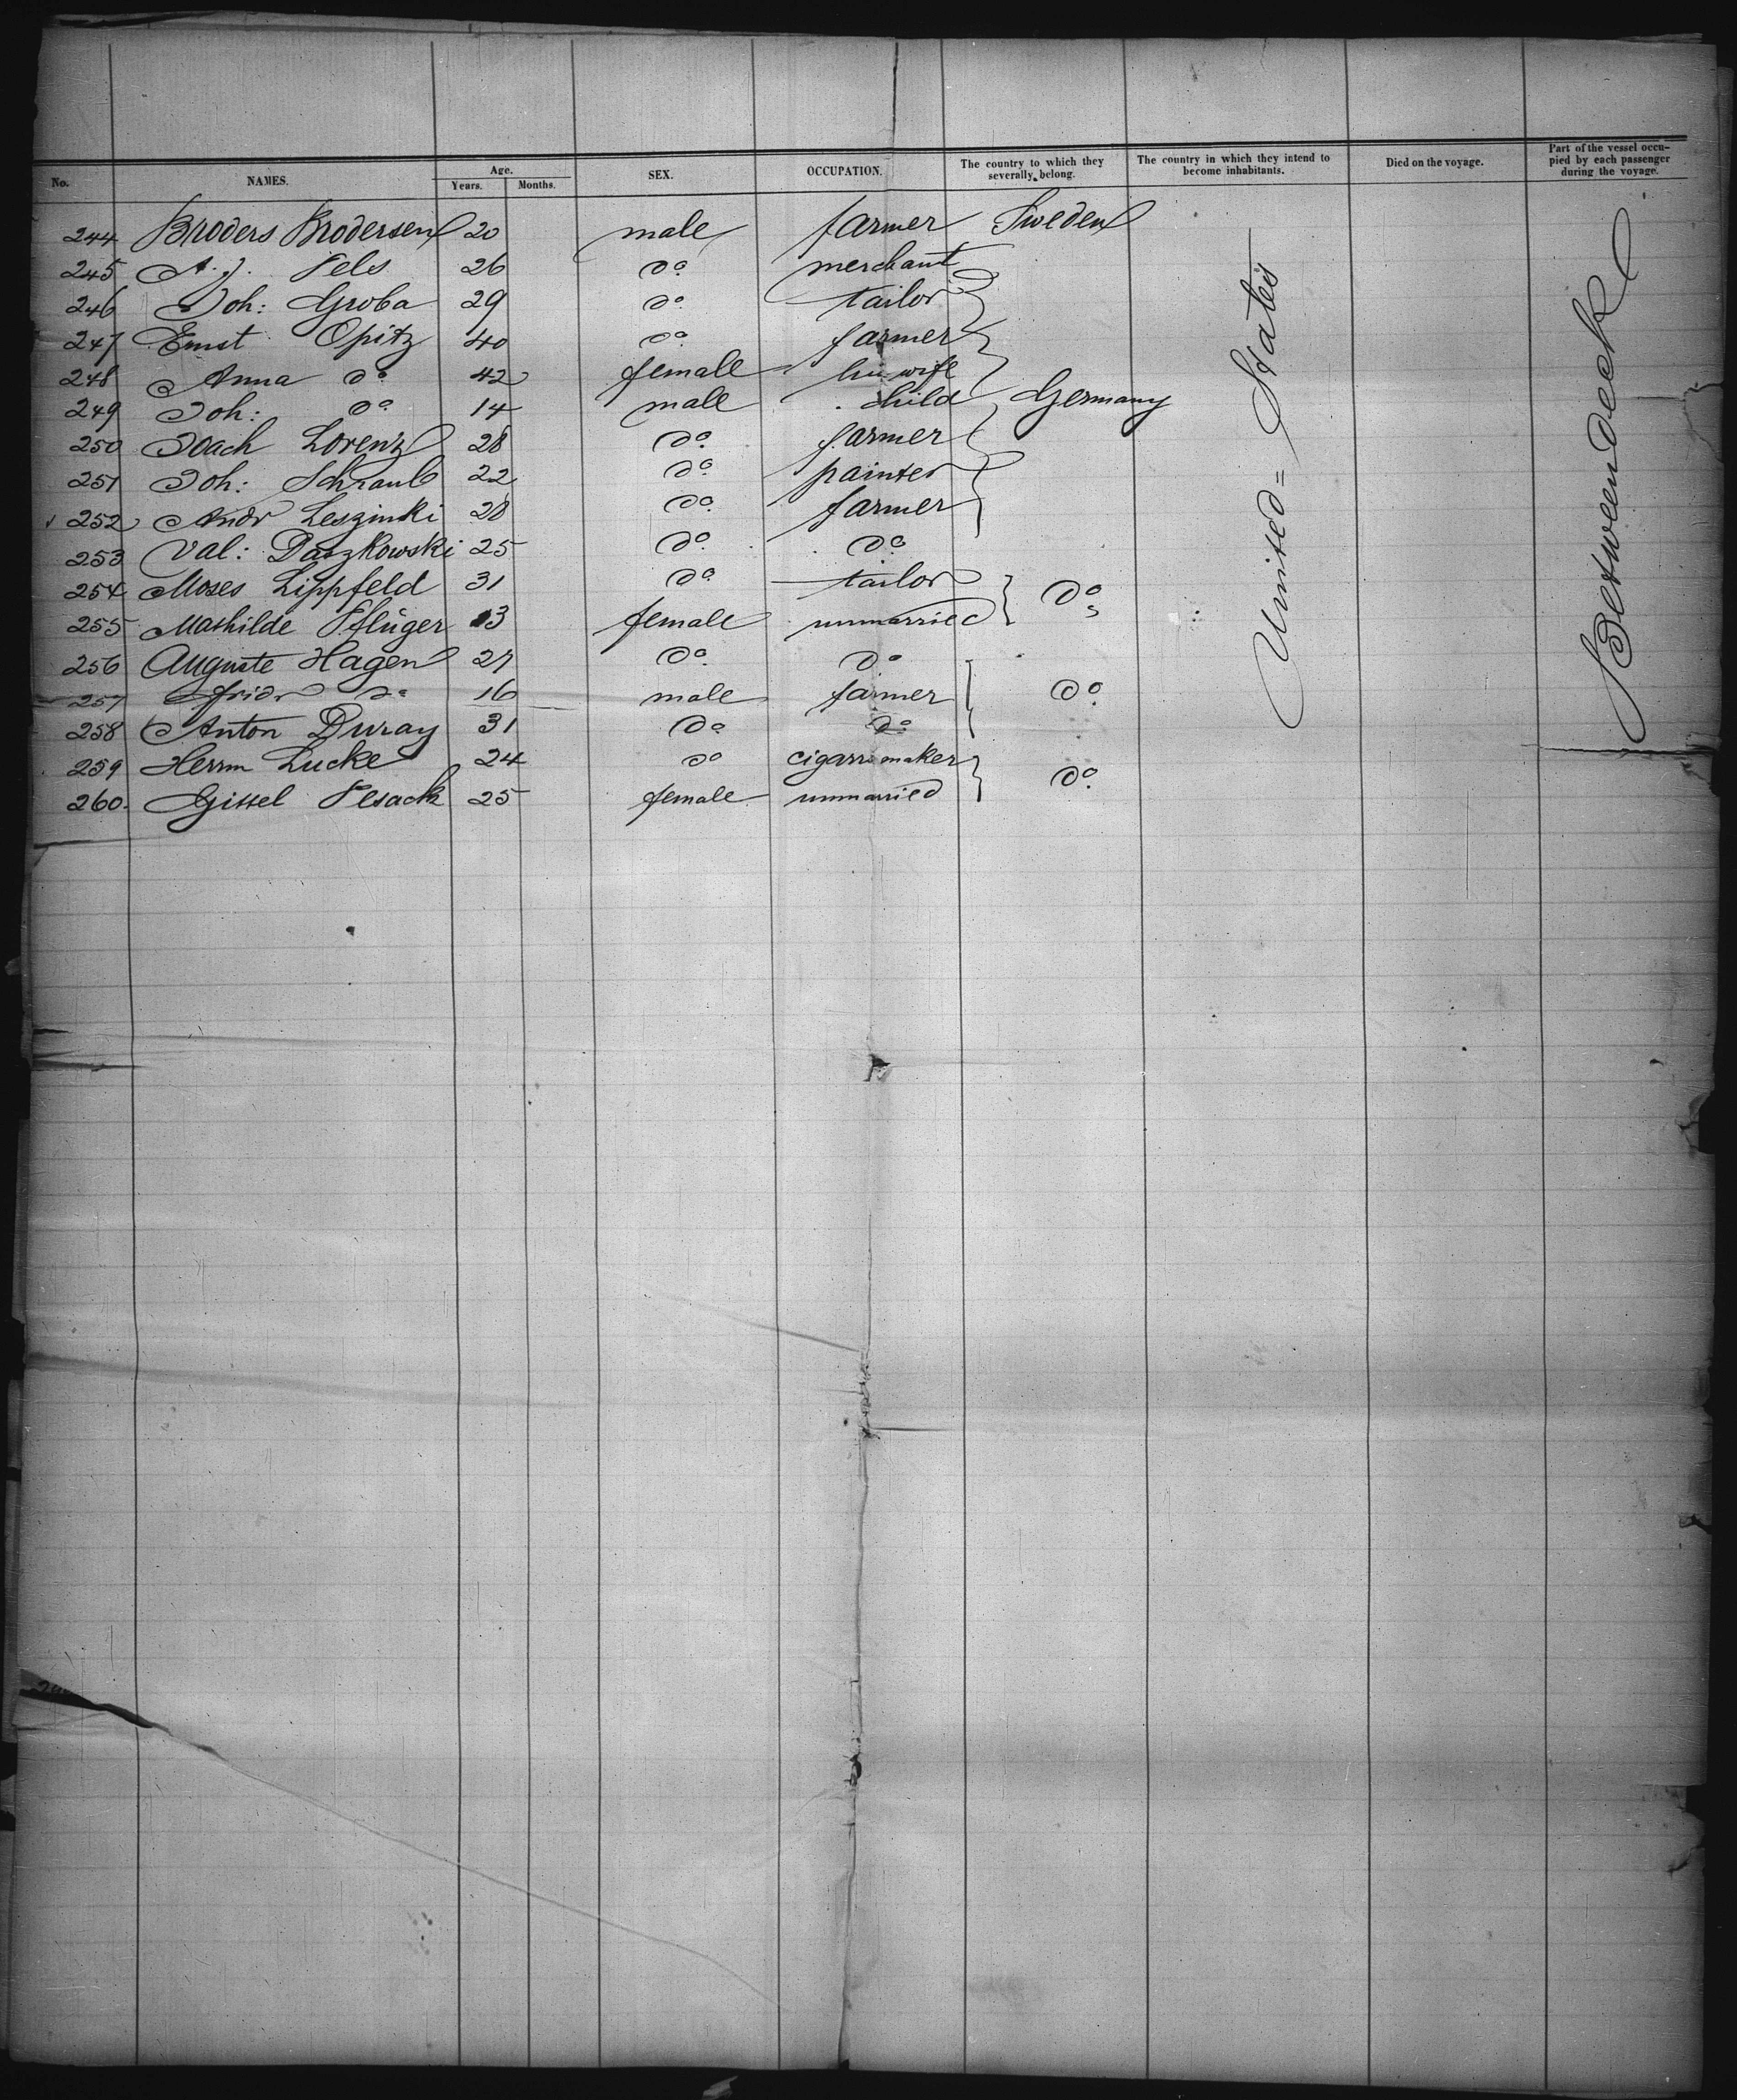 No. NAMES. Age. Years. Months. SEX. OCCUPATION. The country to which they severally belong. The country in which they intend to become inhabitants. Died on the voyage. Part of the vessel occupied by each passenger during the voyage.
244 Broders Brodersen 20 male farmer Sweden
245 A. J. Fels 26 do merchant
246 Joh: Groba 29 do tailor
247 Ernst Opitz 40 do farmer
248 Anna do 42 female his wife
249 Joh: do 14 male child Germany
250 Joach Lorenz 28 do farmer
251 Joh: Schraub 22 do painter
252 Andr Leszinki 28 do farmer
253 Val: Daszkowski 25 do do
254 Moses Lippfeld 31 do tailor do
255 Mathilde Pflüger 13 female unmarried
256 Auguste Hagen 27 do do
257 Fridr do 16 male farmer do
258 Anton Duray 31 do do
259 Herrm Lucke 24 do cigarrmaker do
260. Gittel Pesack 25 female unmarried
United=States
Betweendeck